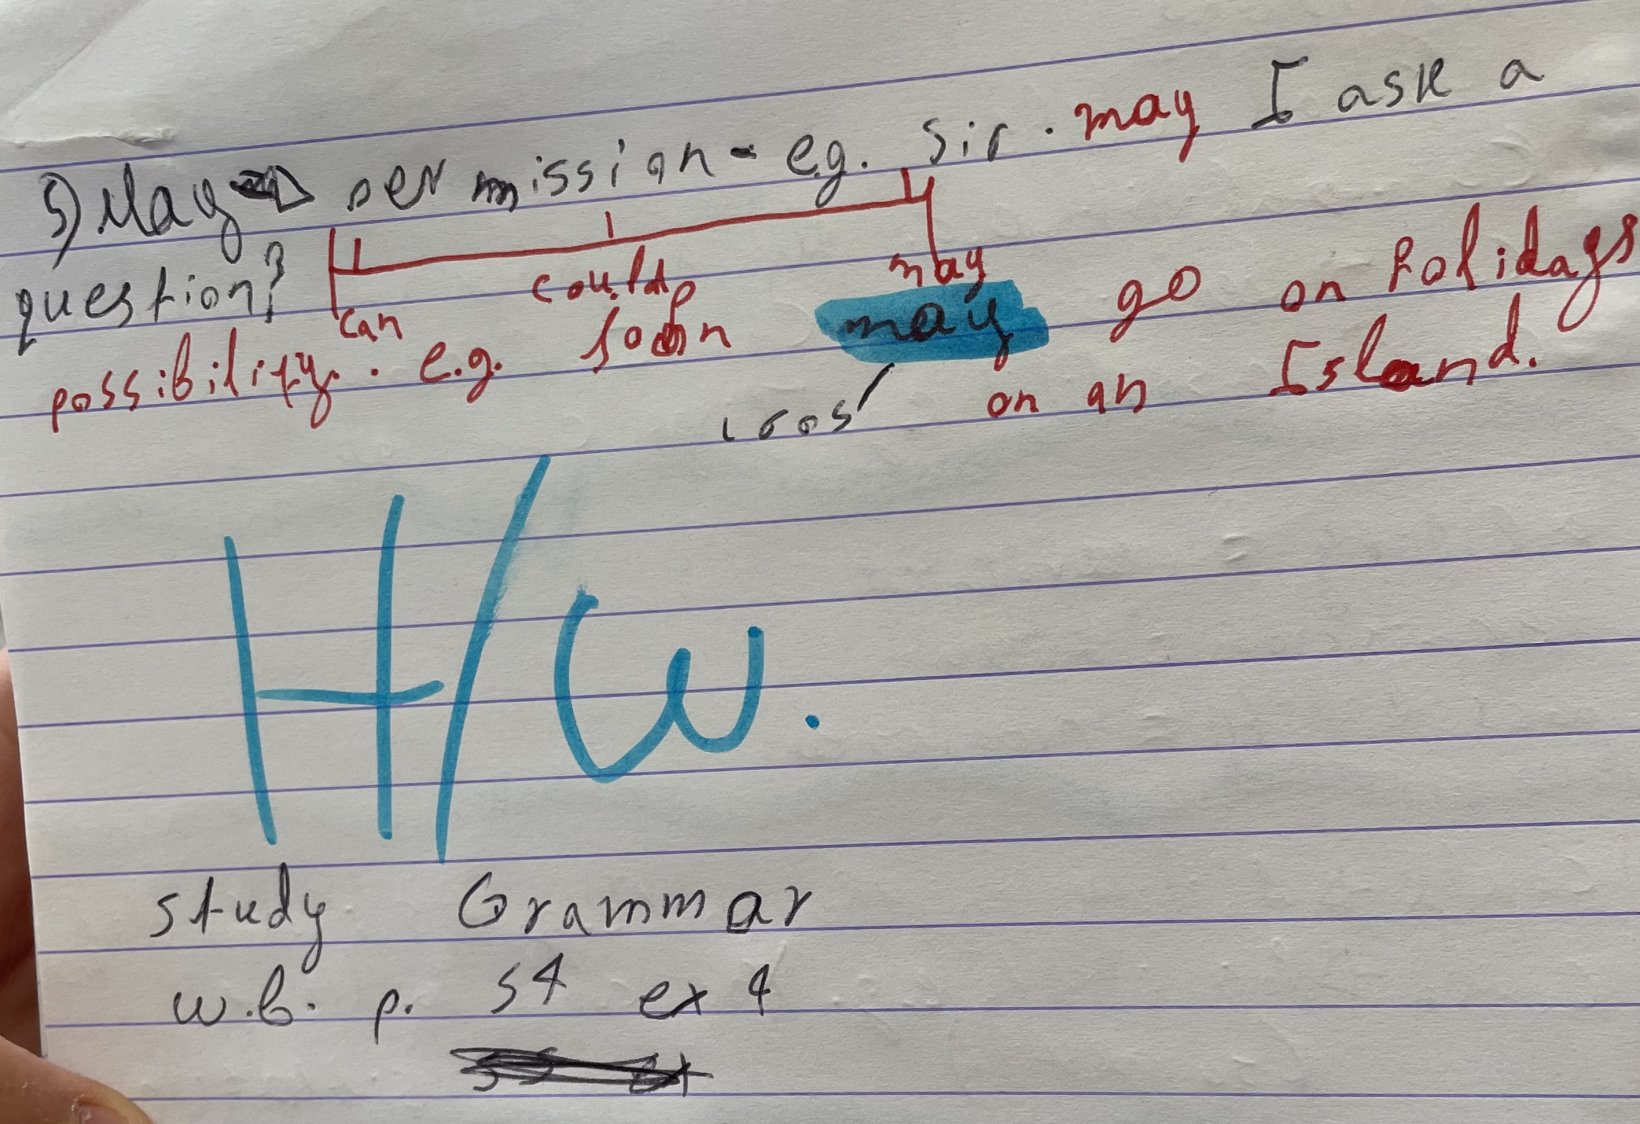 5) May → permission - e.g. Sir. may I ask a
question?
can could may
possibility. e.g. John may go on holidays
ισως on an Island.
H/W.
study Grammar
w.b. p. 54 ex 4